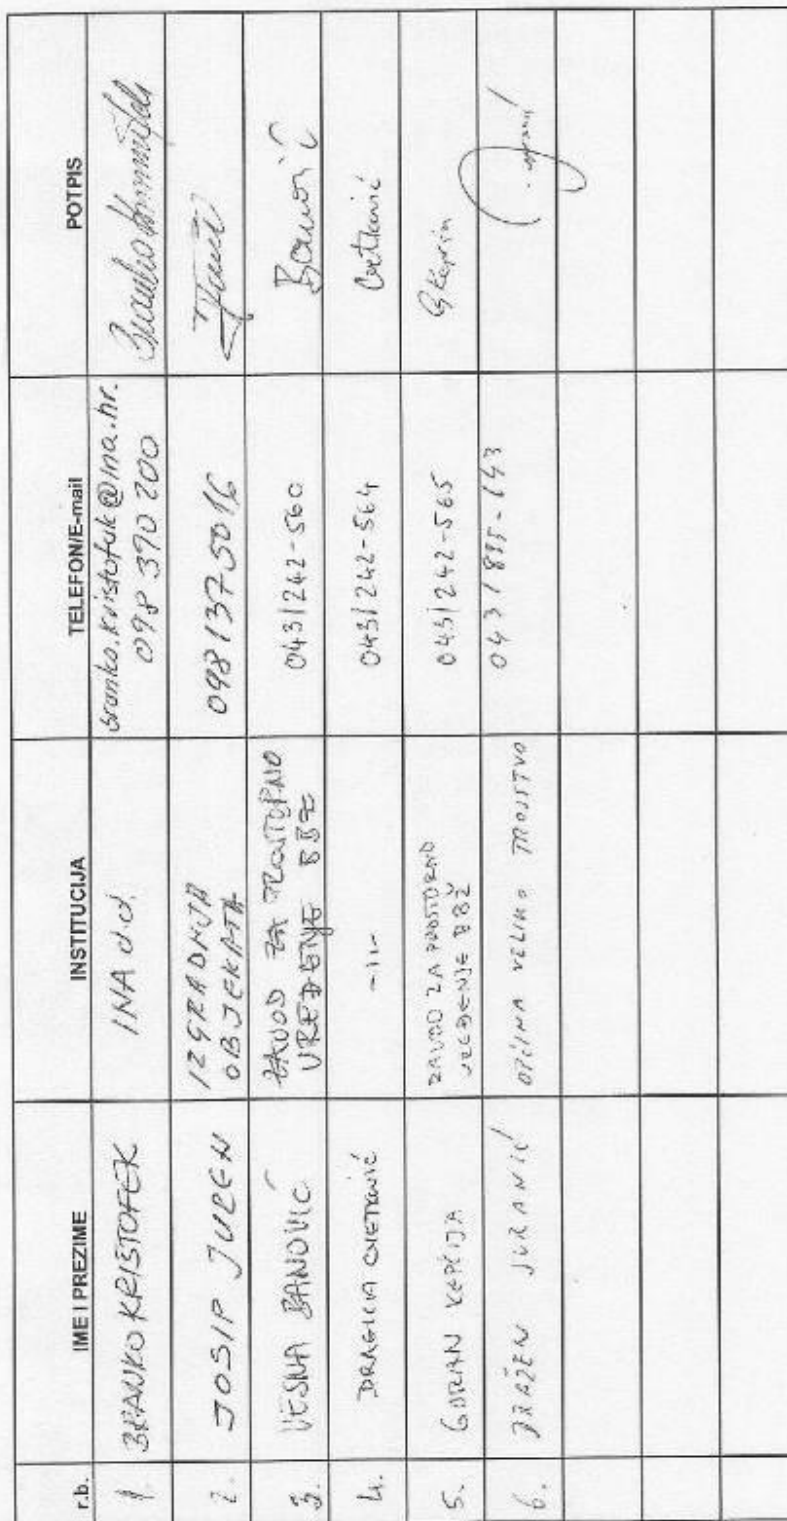 r.b. IME I PREZIME INSTITUCIJA TELEFON/E-mail POTPIS
1. BRANKO KRISTOFEK INA d.d. branko.kristofek@ina.hr.
098 390 200
2. JOSIP JUREN IZGRADNJA
OBJEKATA 098 137 50 16
3. VESNA BANOVIĆ ZAVOD ZA PROSTORNO
UREĐENJE BBŽ 043/242-560 Banović
4. DRAGICA CVETKOVIĆ -11- 043/242-564 Cvetković
5. GORAN KEPRIJA ZAVOD ZA PROSTORNO
UREĐENJE BBŽ 043/242-565
6. DRAŽEN JURANIĆ OPĆINA VELIKO TROJSTVO 043/885-143